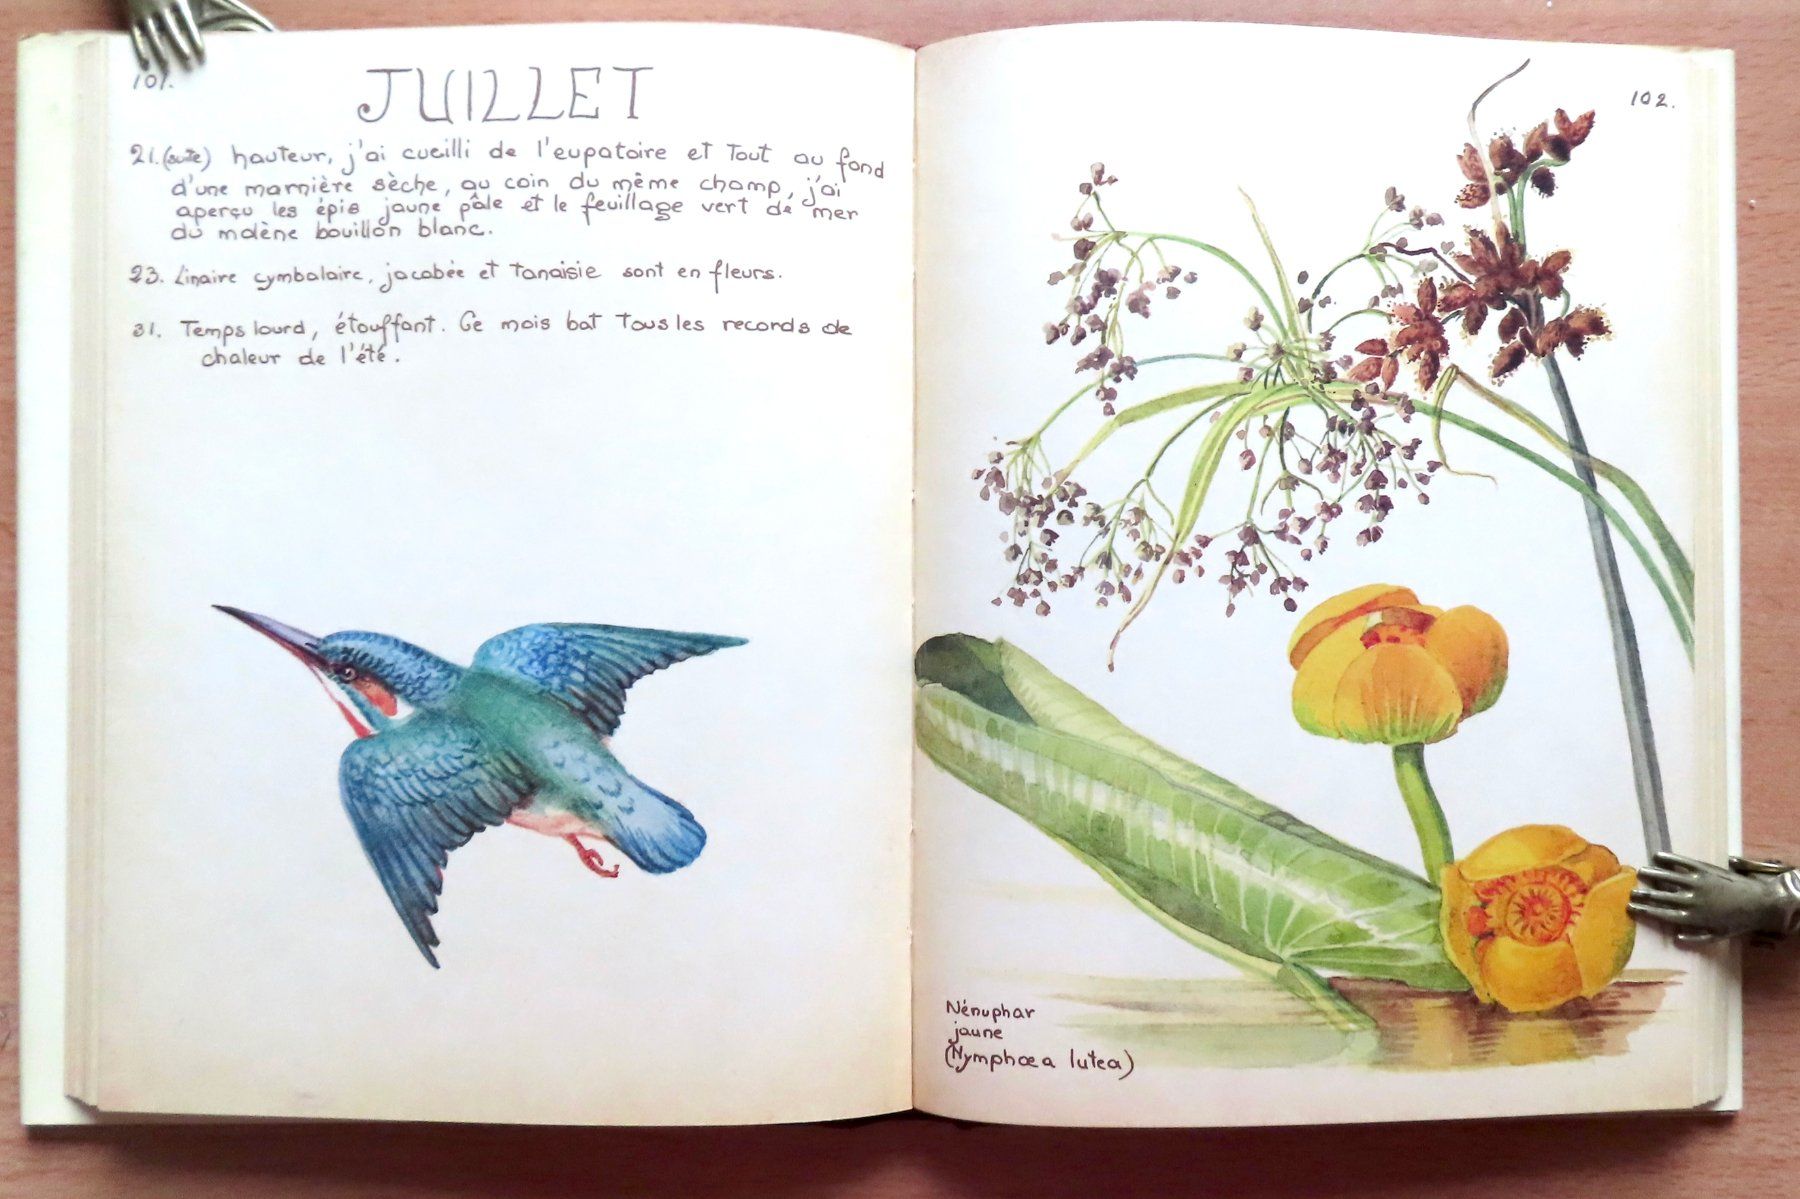 101.
JUILLET
21.(suite) hauteur, j'ai cueilli de l'eupatoire et tout au fond
d'une marnière sèche, au coin du même champ, j'ai
aperçu les épis jaune pâle et le feuillage vert de mer
du molène bouillon blanc.
23. Linaire cymbalaire, jacobée et tanaisie sont en fleurs.
31. Temps lourd, étouffant. Ce mois bat tous les records de
chaleur de l'été.
102.
Nénuphar
jaune
(Nymphœa lutea)